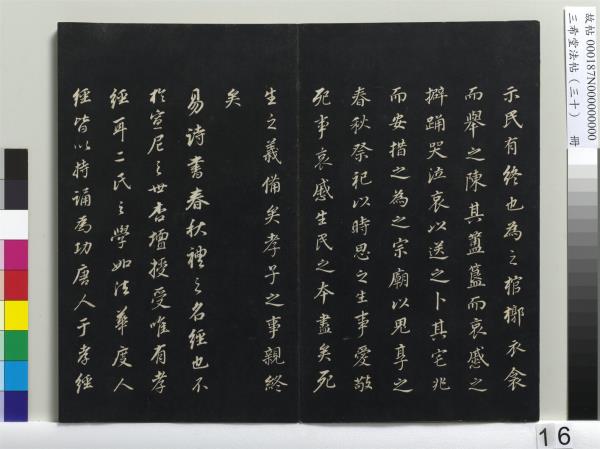 示民有終也為之棺槨衣衾
而舉之陳其簠簋而哀慼之
擗踊哭泣哀以送之卜其宅兆
而安措之為之宗廟以鬼享之
春秋祭祀以時思之生事愛敬
死事哀慼生民之本盡矣死
生之義備矣孝子之事親終
矣
易詩書春秋禮之名經也不
於宣尼之世杏壇授受唯有孝
經耳二氏之學如法華度人
經皆以持誦為功唐人于孝經
故帖 000187N000000000
三希堂法帖(三十) 冊
16